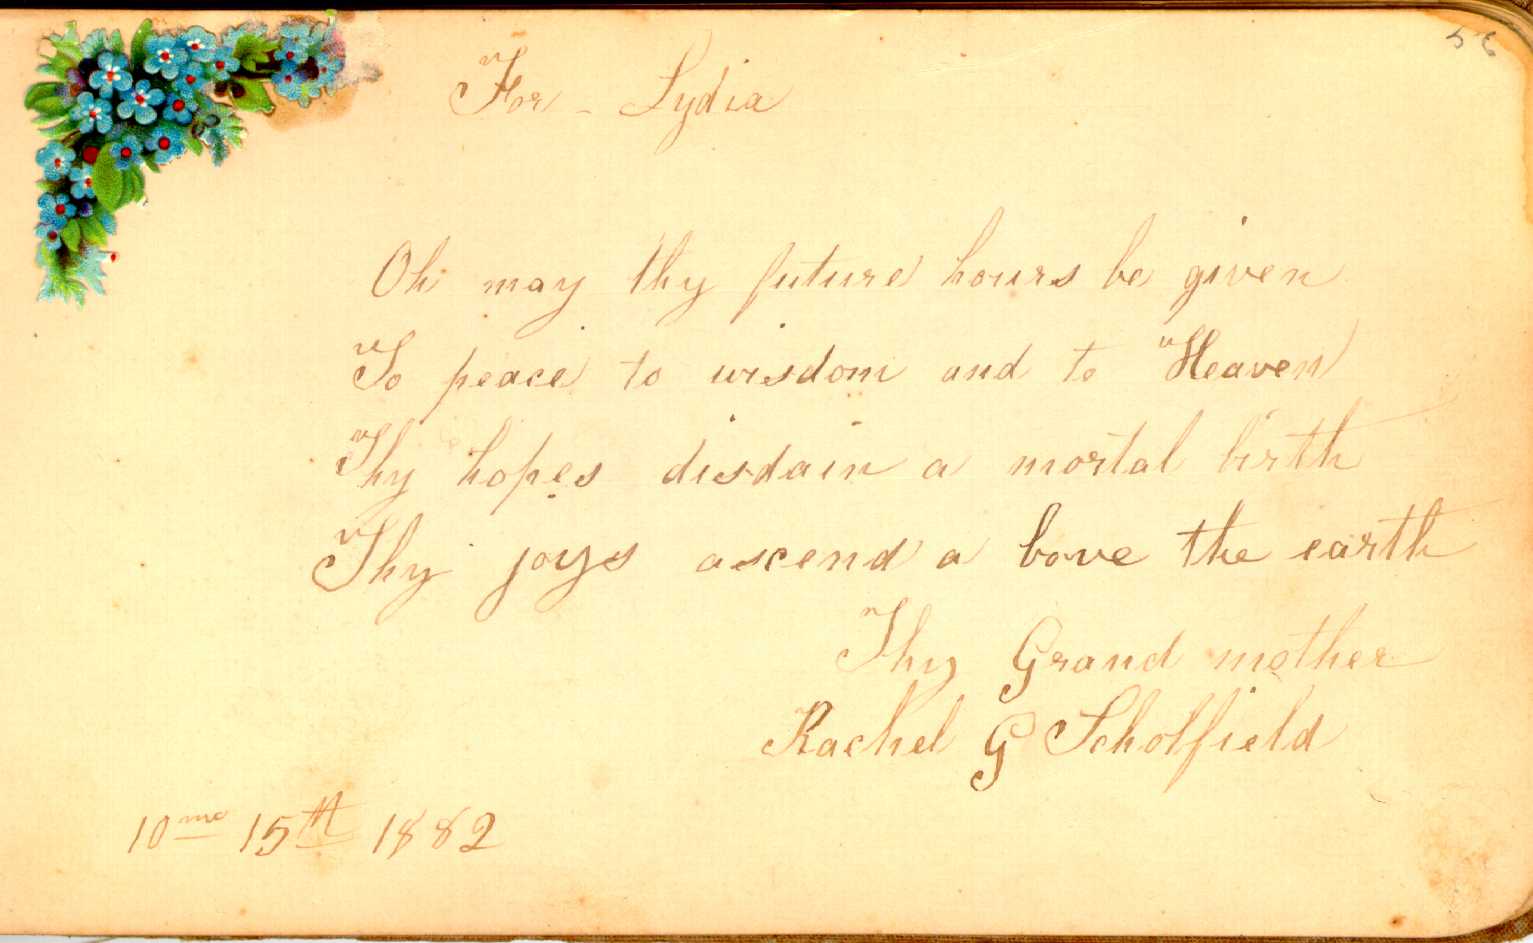 56
For - Lydia
Oh may thy future hours be given
To peace to wisdom and to Heaven
Thy hopes disdain a mortal birth
Thy joys ascend a bove the earth
Thy Grand mother
Rachel G Scholfield
10mo 15th 1882